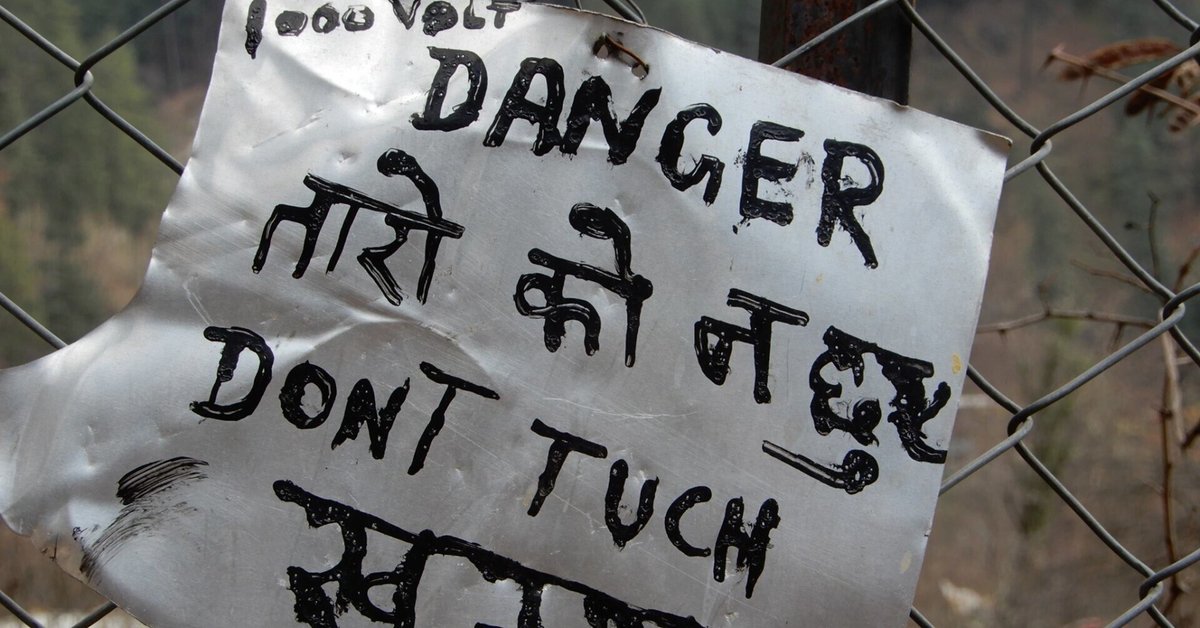 1000 VOLT
DANGER
तारो को न छुए
DONT TUCH